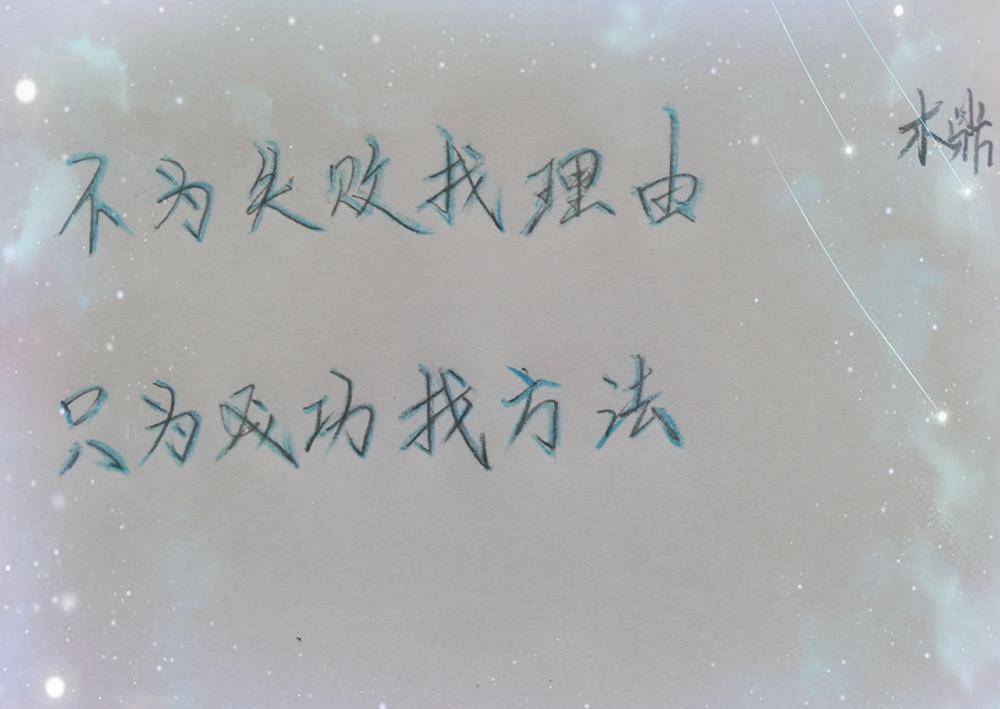 不为失败找理由
只为成功找方法
木鼎